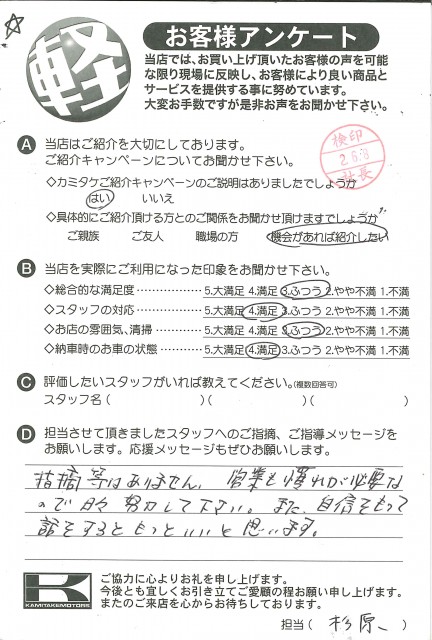 軽
お客様アンケート
当店では、お買い上げ頂いたお客様の声を可能
な限り現場に反映し、お客様により良い商品と
サービスを提供する事に努めています。
大変お手数ですが是非お声をお聞かせ下さい。
A 当店はご紹介を大切にしております。
ご紹介キャンペーンについてお聞かせ下さい。
検印
2.6.-8
社長
◇カミタケご紹介キャンペーンのご説明はありましたでしょうか
はい いいえ
◇具体的にご紹介頂ける方とのご関係をお聞かせ頂けますでしょうか
ご親族 ご友人 職場の方 機会があれば紹介したい
B 当店を実際にご利用になった印象をお聞かせ下さい。
◇総合的な満足度 ・・・・・・・・・・・・・・ 5.大満足 4.満足 3.ふつう 2.やや不満 1.不満
◇スタッフの対応 ・・・・・・・・・・・・・・ 5.大満足 4.満足 3.ふつう 2.やや不満 1.不満
◇お店の雰囲気、清掃 ・・・・・・・・・ 5.大満足 4.満足 3.ふつう 2.やや不満 1.不満
◇納車時のお車の状態 ・・・・・・・・ 5.大満足 4.満足 3.ふつう 2.やや不満 1.不満
C 評価したいスタッフがいれば教えてください。(複数回答可)
スタッフ名( )( )( )
D 担当させて頂きましたスタッフへのご指摘、ご指導メッセージを
お願いします。応援メッセージもぜひお願いします。
指摘等はありません、営業も慣れが必要な
ので日々努力して下さい。また、自信をもって
話をするともっといいと思います。
K
KAMITAKEMOTORS
ご協力に心よりお礼を申し上げます。
今後とも宜しくお引き立てご愛顧の程お願い申し上げます。
またのご来店を心からお待ちしております。
担当( 杉原 )